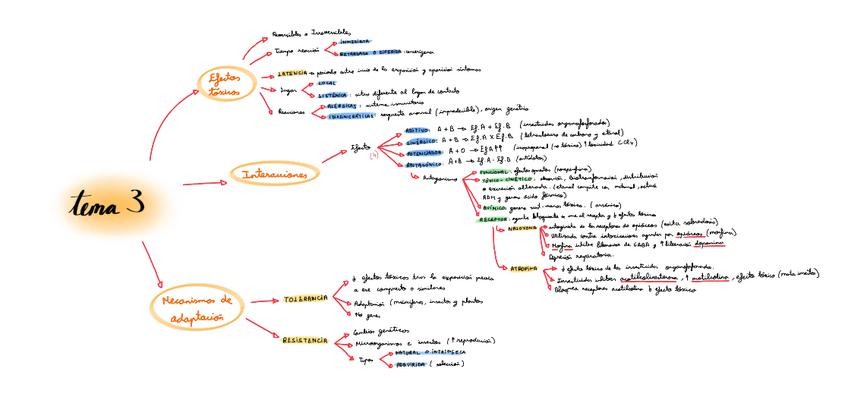 tema 3
Efectos tóxicos
Reversibles o Irreversibles
Tiempo reacción
INMEDIATA
RETARDADO O DIFERIDA: cancerígena
LATENCIA → periodo entre inicio de la exposición y aparición síntomas
Lugar
LOCAL
SISTÉMICA: sitio diferente al lugar de contacto
Reacciones
ALÉRGICAS: sistema inmunitario
IDIOSINCRÁTICAS: respuesta anormal (impredecible), origen genético
Interacciones
Efecto
ADITIVO: A + B → Ef. A + Ef. B (insecticidas organofosforados)
SINÉRGICO: A + B → Ef. A x Ef. B (tetracloruro de carbono y etanol)
POTENCIADOR: A + O → Ef A↑↑ (isopropanol (no tóxico) ↑ toxicidad CCl4)
ANTAGÓNICO: A + B → Ef. A - Ef. B (antídotos)
Antagonismo
FUNCIONAL: efectos opuestos
TÓXICO-CINÉTICO: absorción, biotransformación, distribución
o excreción alterada. (etanol compite con metanol, evita
ADH y genera ácido fórmico)
QUÍMICO: genera sust. menos tóxica. (arsénico)
RECEPTOR: agente bloqueante se une al receptor y ↓ efecto tóxico
NALOXONA
antagonista de los receptores de opiáceos (evita sobredosis)
Utilizada contra intoxicaciones agudas por opiáceos (morfina)
Morfina inhibe liberación de GABA y ↑ liberación dopamina
Depresión respiratoria
ATROPINA
↓ efecto tóxico de los insecticidas organofosforados.
Insecticidas inhiben acetilcolinesterasa, ↑ acetilcolina, efecto tóxico
Bloquea receptores acetilcolina ↓ efecto tóxico
Mecanismos de
adaptación
TOLERANCIA
↓ efectos tóxicos tras la exposición previa
a ese compuesto o similares
Adaptación (mamíferos, insectos y plantas
No genes
RESISTENCIA
Cambios genéticos
Microorganismos e insectos (↑ reproducción)
Tipos
NATURAL O INTRÍNSECA
ADQUIRIDA (selección)